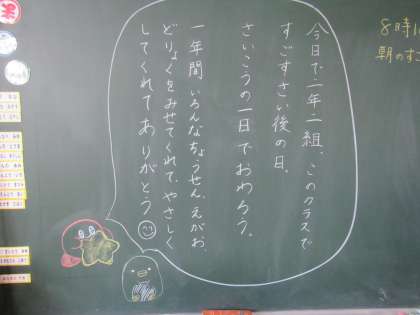 今日で二年二組、このクラスで
すごすさい後の日。
さいこうの一日でおわろう。
一年間いろんなちょうせん、えがお、
どりょくをみせてくれて、やさしく
してくれてありがとう
8時
朝のす